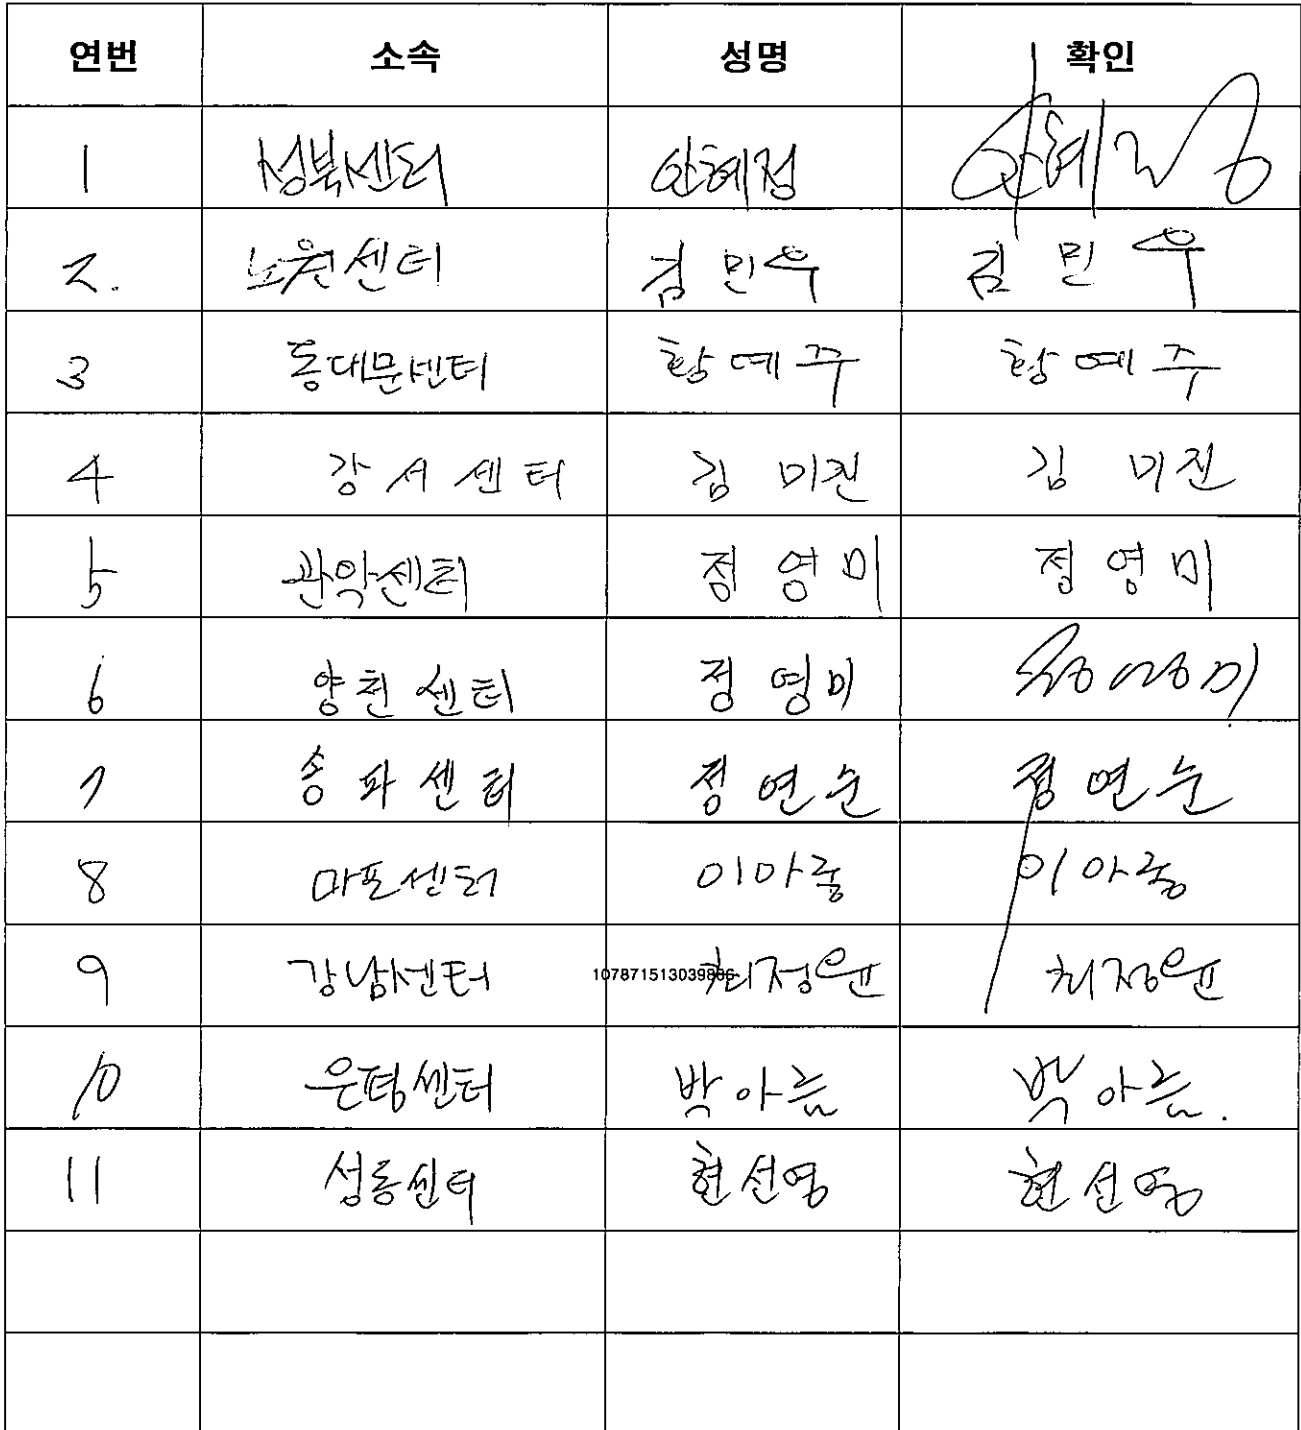 연번 소속 성명 확인
1 성북센터 안혜정 안혜정
2. 노원센터 김민우 김민우
3 동대문센터 황예주 황예주
4 강서센터 김미진 김미진
5 관악센터 정영미 정영미
6 양천센터 정영미 정영미
7 송파센터 정연순 정연순
8 마포센터 이아롱 이아롱
9 강남센터 최정윤 최정윤
10 은평센터 박아름 박아름.
11 성동센터 현선영 현선영